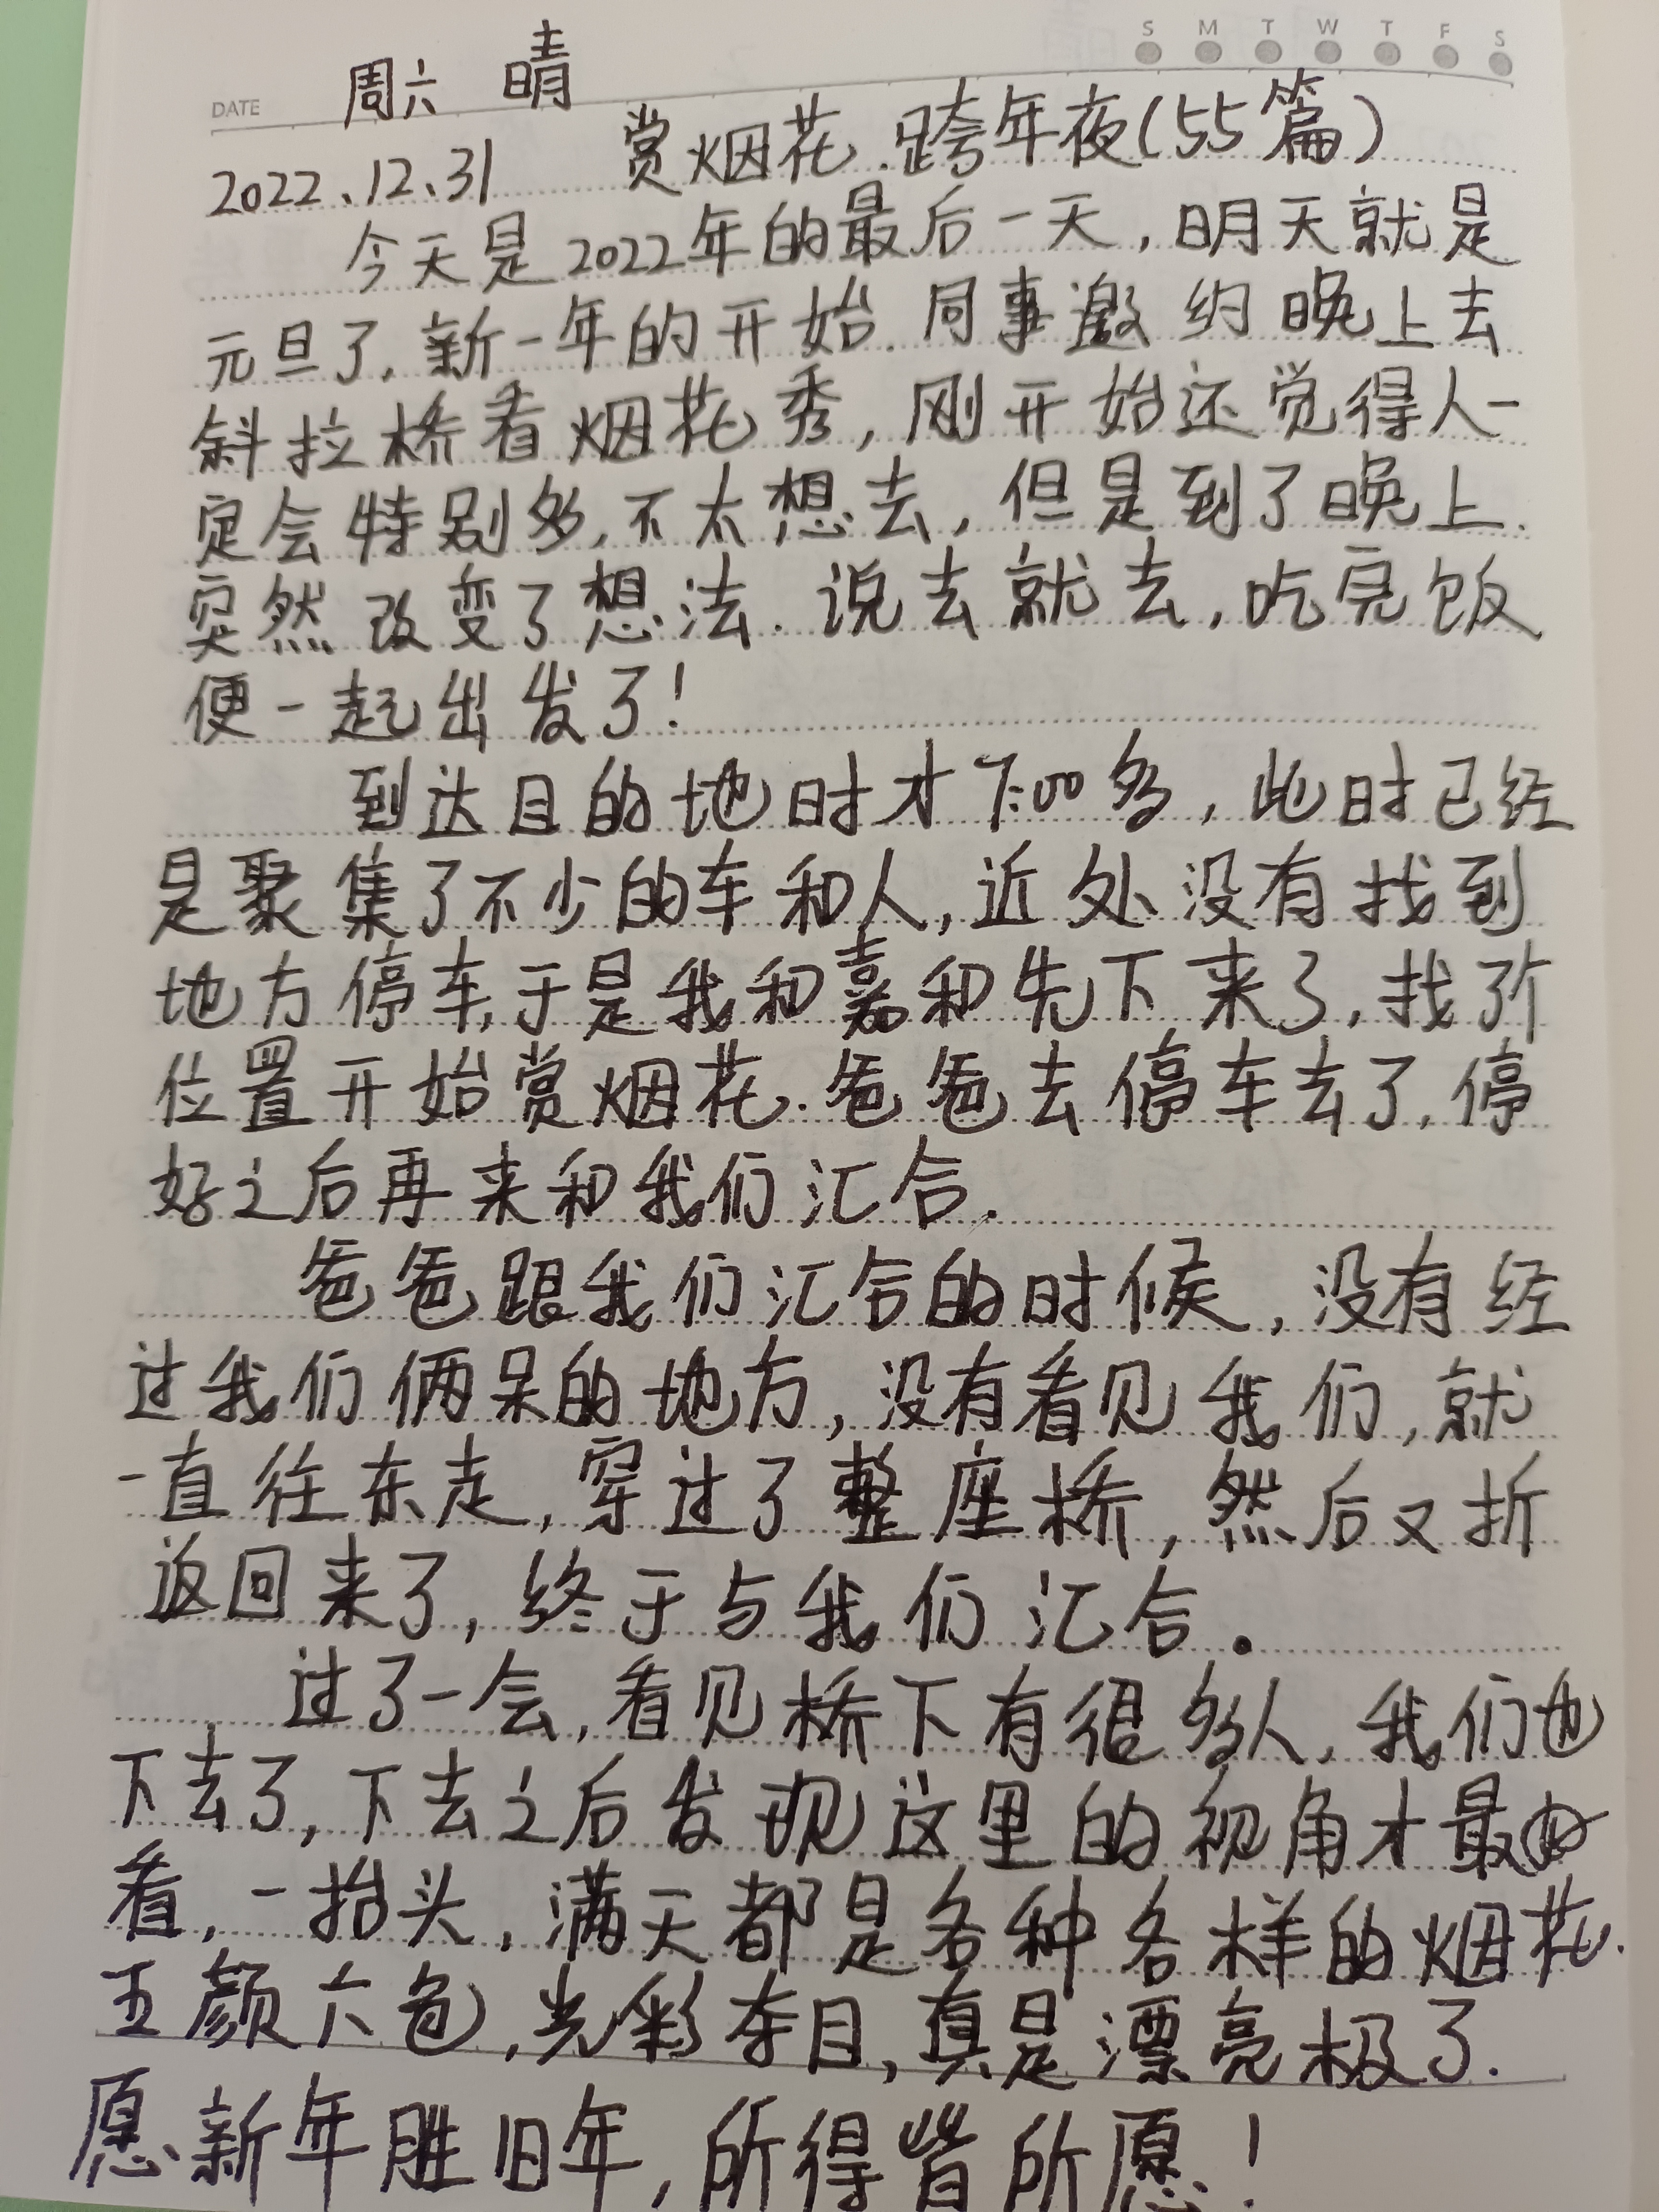 S M T W T F S
DATE 周六 晴
2022、12、31 赏烟花.跨年夜(55篇)
今天是2022年的最后一天,明天就是
元旦了.新一年的开始.同事邀约晚上去
斜拉桥看烟花秀,刚开始还觉得人一
定会特别多,不太想去,但是到了晚上.
突然改变了想法.说去就去,吃完饭
便一起出发了!
到达目的地时才7:00多,此时已经
是聚集了不少的车和人,近处没有找到
地方停车,于是我和嘉和先下来了,找了个
位置开始赏烟花.爸爸去停车去了,停
好之后再来和我们汇合.
爸爸跟我们汇合的时候,没有经
过我们俩呆的地方,没有看见我们,就
一直往东走,穿过了整座桥,然后又折
返回来了,终于与我们汇合。
过了一会,看见桥下有很多人,我们也
下去了,下去之后发现这里的视角才最
看,一抬头,满天都是各种各样的烟花.
五颜六色,光彩夺目,真是漂亮极了.
愿新年胜旧年,所得皆所愿!